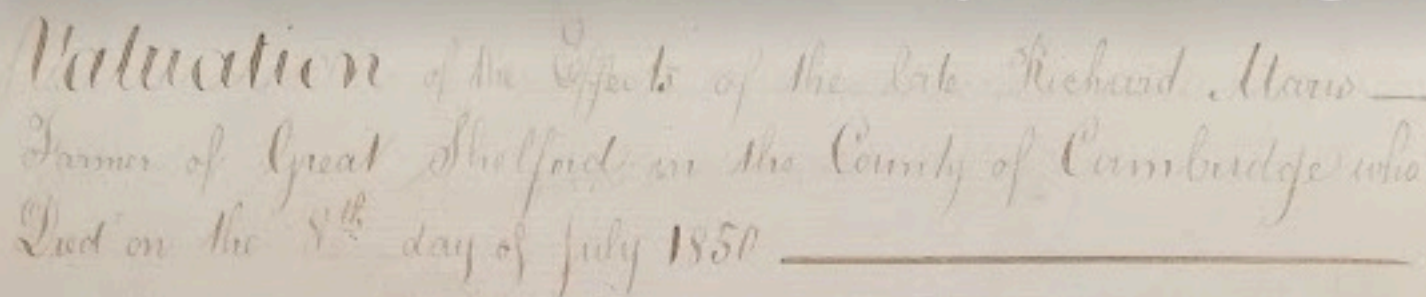 Valuation of the Effects of the late Richard Maris
Farmer of Great Shelford in the County of Cambridge who
Died on the 8th day of July 1850